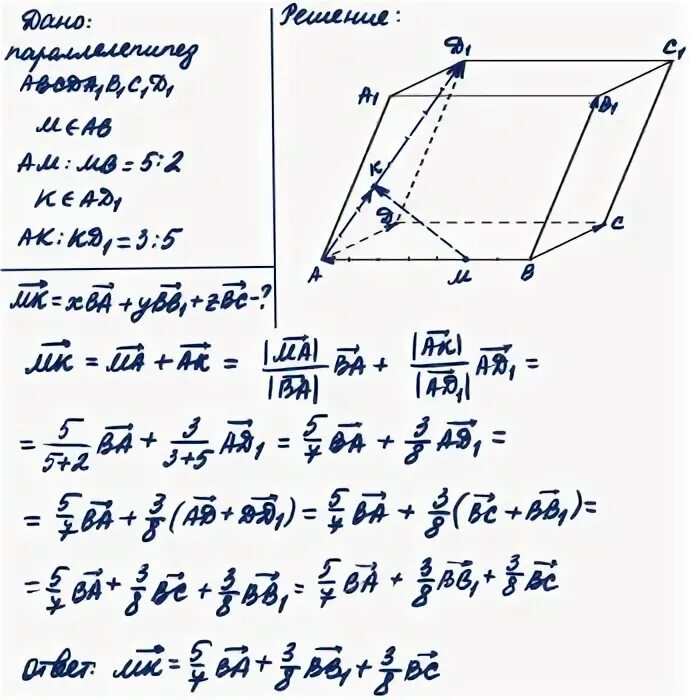 Дано:
параллелепипед
ABCDA₁B₁C₁D₁
M ∈ AB
AM : MB = 5 : 2
K ∈ AD₁
AK : KD₁ = 3 : 5
MK⃗ = xBA⃗ + yBB₁⃗ + zBC⃗ - ?
Решение:
D₁ C₁
A₁ B₁
K
D C
A M B
MK⃗ = MA⃗ + AK⃗ = |MA⃗|/|BA⃗| BA⃗ + |AK⃗|/|AD₁⃗| AD₁⃗ =
= 5/(5+2) BA⃗ + 3/(3+5) AD₁⃗ = 5/7 BA⃗ + 3/8 AD₁⃗ =
= 5/7 BA⃗ + 3/8 (AD⃗ + DD₁⃗) = 5/7 BA⃗ + 3/8 (BC⃗ + BB₁⃗) =
= 5/7 BA⃗ + 3/8 BC⃗ + 3/8 BB₁⃗ = 5/7 BA⃗ + 3/8 BB₁⃗ + 3/8 BC⃗
ответ: MK⃗ = 5/7 BA⃗ + 3/8 BB₁⃗ + 3/8 BC⃗